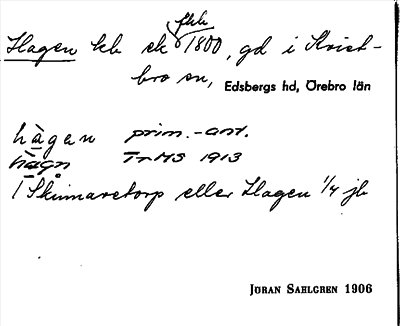 fkb
Hagen kb ek 1800, gd i Kvist-
bro sn, Edsbergs hd, Örebro län
hàgen prim.-ant.
hàgn TrMS 1913
/ Skinnaretorp eller Hagen 1/4 jb
JÖRAN SAHLGREN 1906